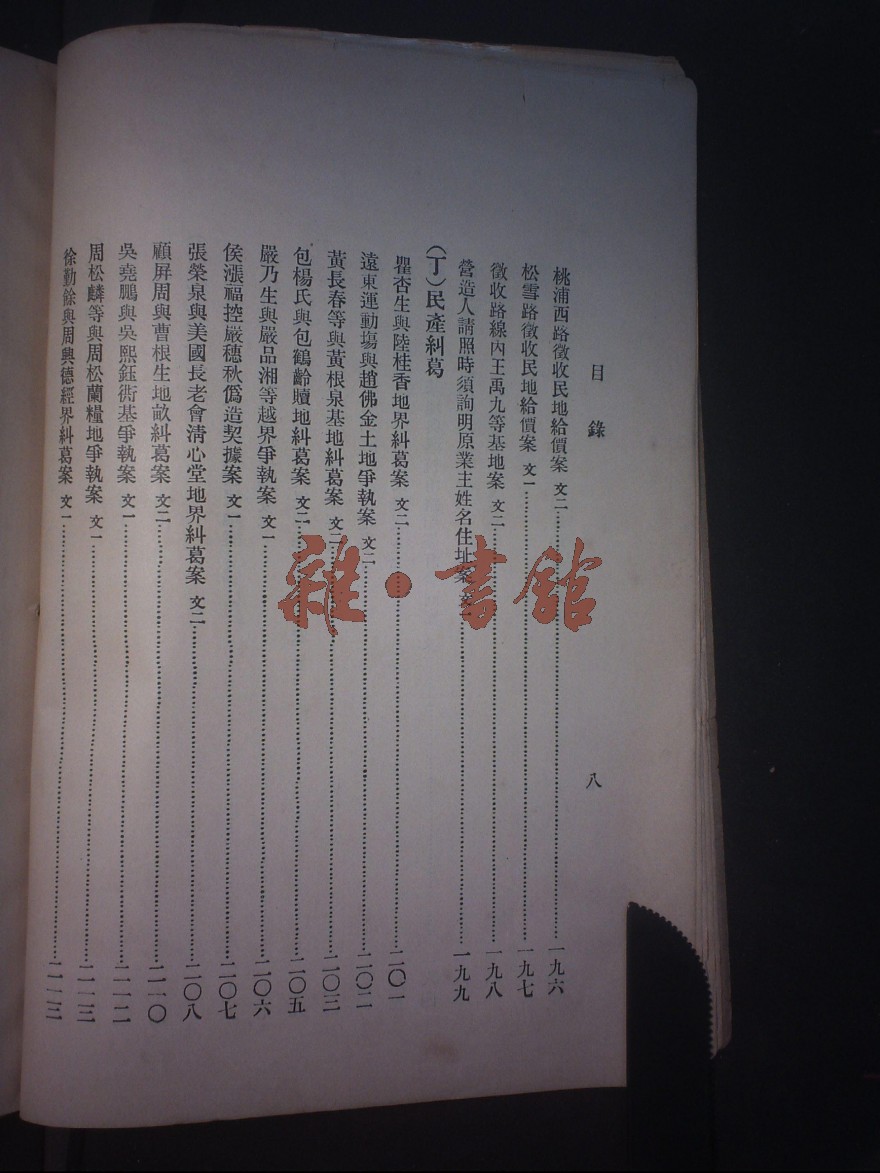 目錄 八
桃浦西路徵收民地給價案 文二 一九六
松雪路徵收民地給價案 文一 一九七
徵收路線內王禹九等基地案 文二 一九八
營造人請照時須詢明原業主姓名住址案 一九九
(丁)民產糾葛
瞿杏生與陸桂香地界糾葛案 文二 二〇一
遠東運動塲與趙佛金土地爭執案 文二 二〇二
黃長春等與黃根泉基地糾葛案 文二 二〇三
包楊氏與包鶴齡贖地糾葛案 文二 二〇五
嚴乃生與嚴品湘等越界爭執案 文一 二〇六
侯漲福控嚴穗秋僞造契據案 文一 二〇七
張榮泉與美國長老會淸心堂地界糾葛案 文二 二〇八
顧屏周與曹根生地畝糾葛案 文二 二一〇
吳堯鵬與吳熙鈺衖基爭執案 文一 二一二
周松麟等與周松蘭糧地爭執案 文一 二一三
徐勤餘與周興德經界糾葛案 文一 二一三
雜·書館